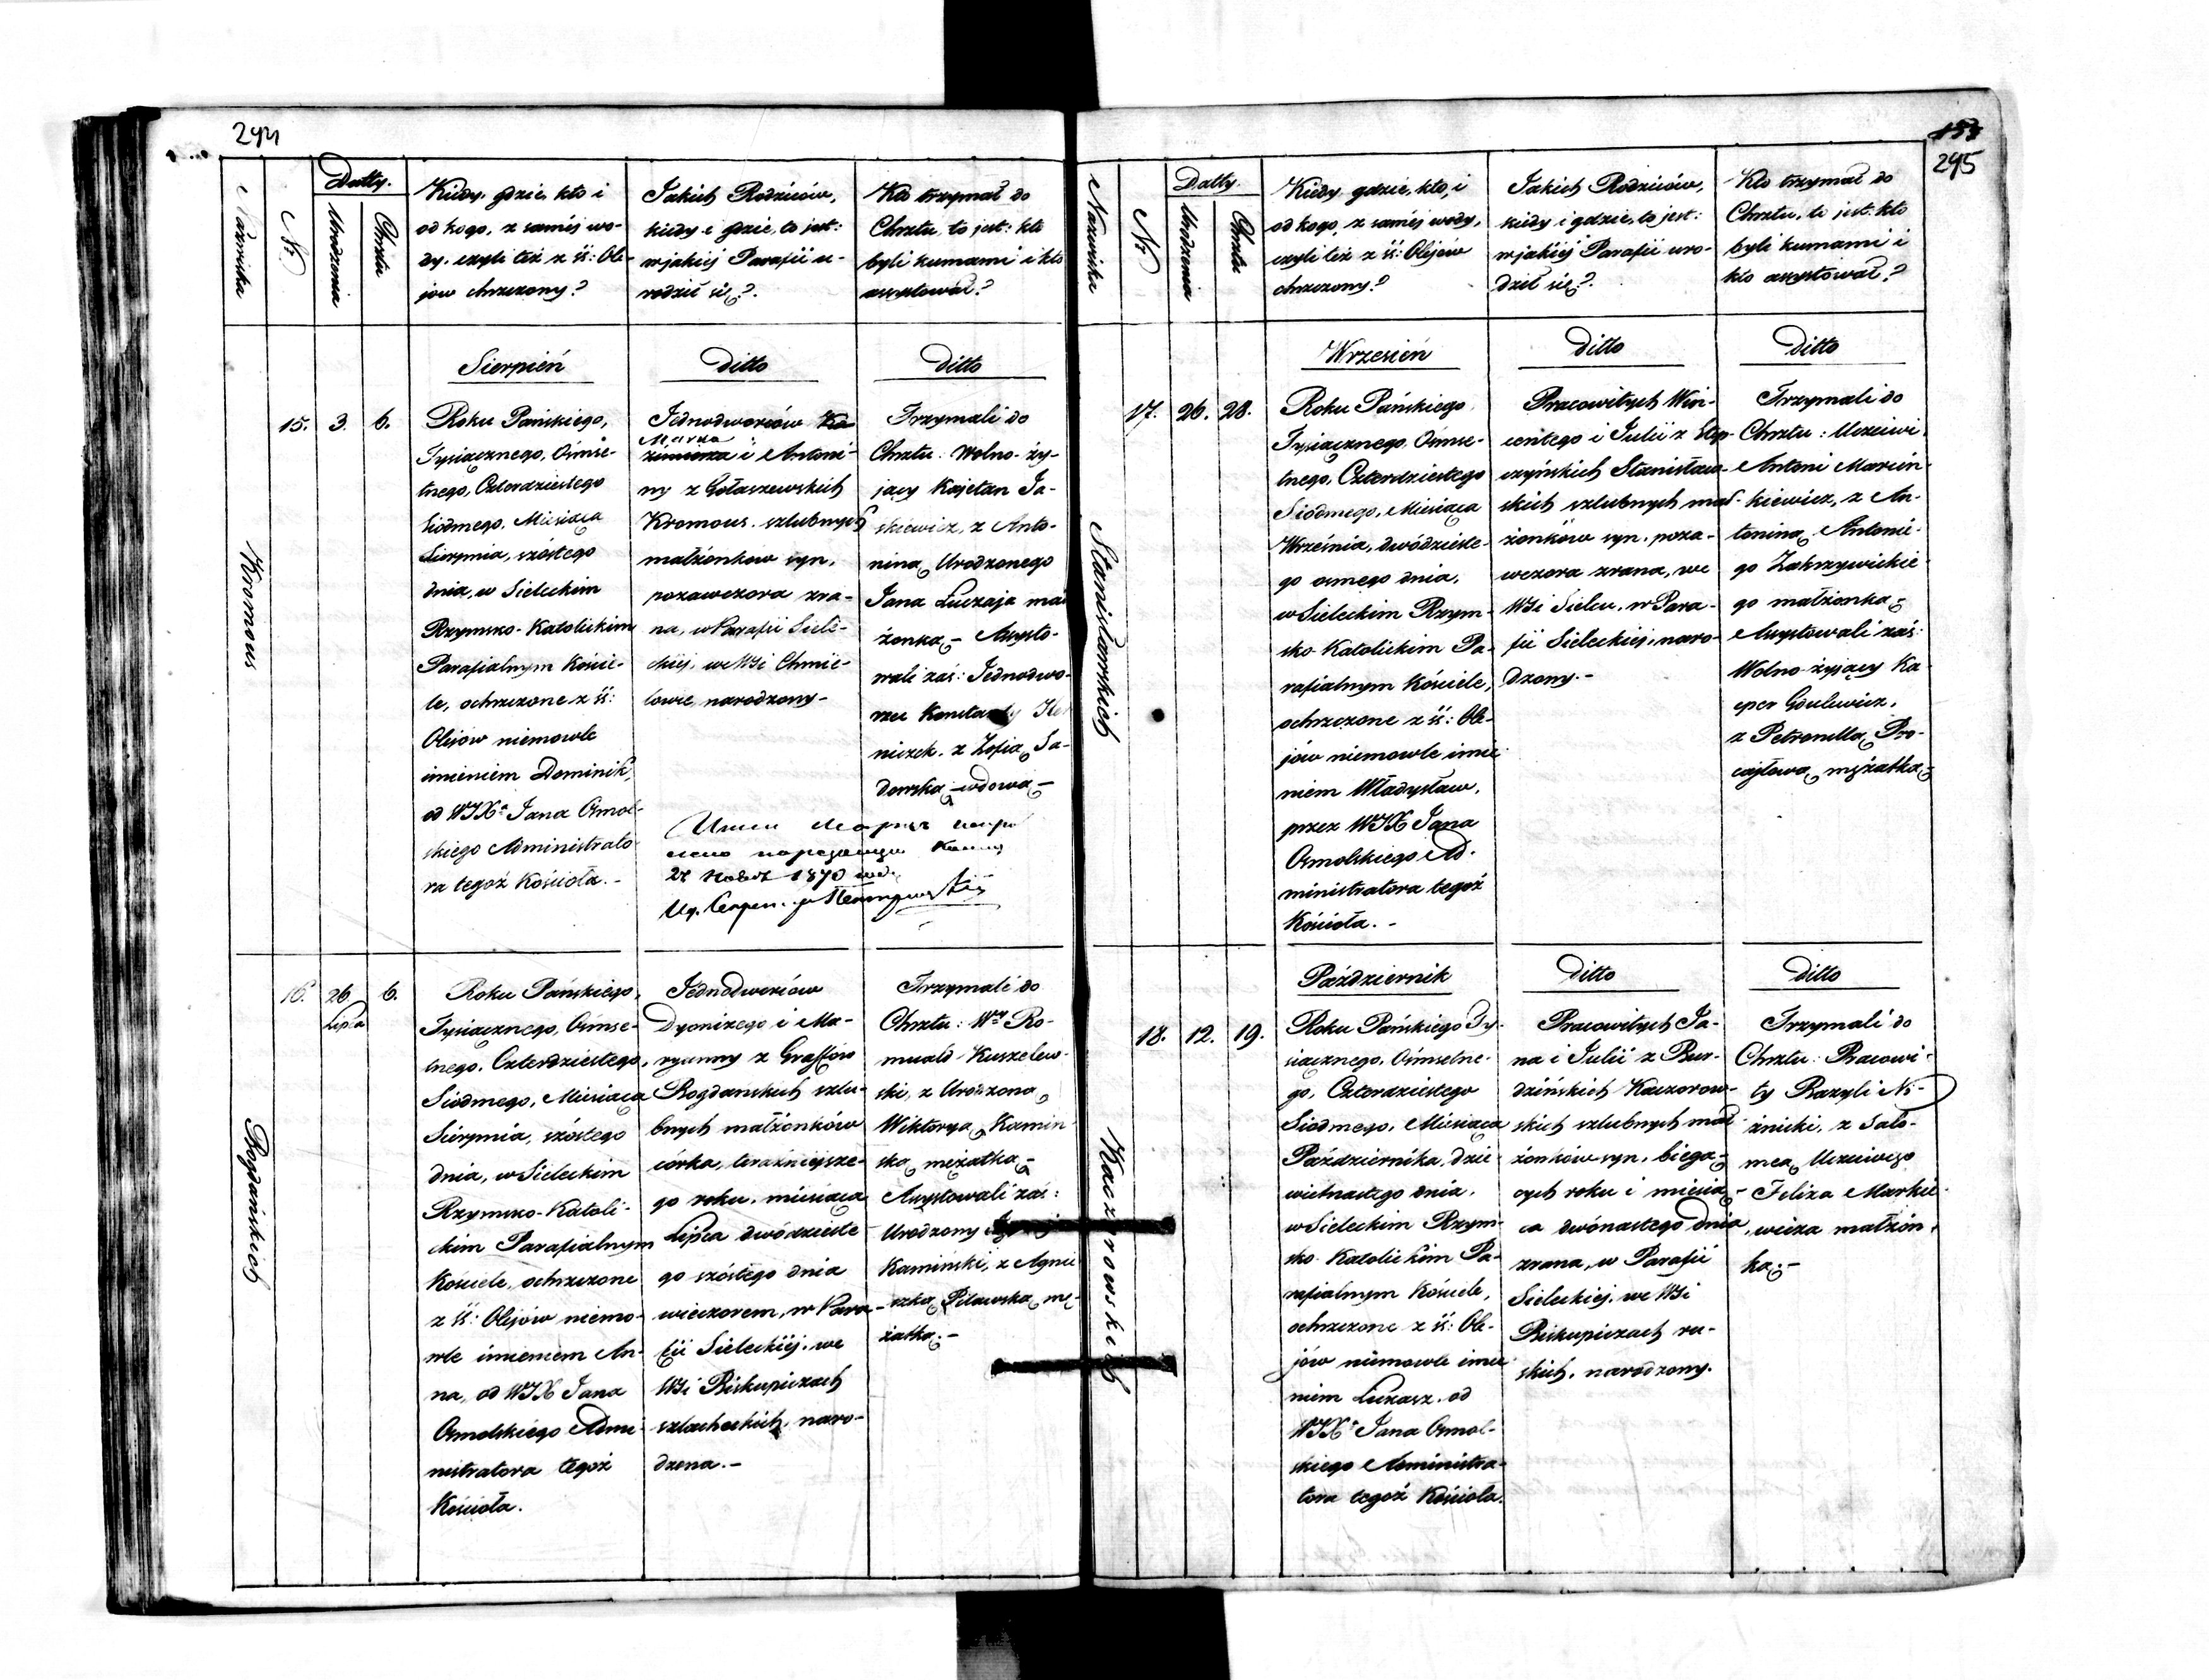 294
Nazwiska
Nr
Datty.
Urodzenia
Chrztu
Kiedy, gdzie, kto i
od kogo, z saméj wo-
dy, czyli też z śś: Ole-
jow chrzczony?
Jakich Rodziców,
kiedy i gdzie, to jest:
w jakiéj Parafii u-
rodził się?
Kto trzymał do
Chrztu, to jest: kto
byli kumami i kto
assystował?
Sierpień
ditto
ditto
Kromous
15.
3.
6.
Roku Pańskiego,
Tysiącznego, Ośmse-
tnego, Czterdziestego
Siódmego, Miesiąca
Sierpnia, szóstego
dnia, w Sieleckim
Rzymsko-Katolickim
Parafialnym Koście-
le, ochrzczone z śś:
Olejow niemowle
imieniem Dominik,
od WJXa Jana Osmol-
skiego Administrato-
ra tegoż Kościoła.-
Jednodworców Ka
Marka
zimierza i Antoni-
ny z Gołaszewskich
Kromous. szlubnych
małżonkow syn,
pozawczora zra-
na, w Parafii Siele-
ckiéj, we Wsi Chmie-
lowie, narodzony-
Trzymali do
Chrztu: Wolno-ży-
jący Kajetan Ja-
skiewicz, z Anto-
niną Urodzonego
Jana Łuczaja mał
żonką- Assysto-
wali zaś: Jednodwo-
rzec
z Zofią Sa-
dowską wdową-
1870
16.
26
Lipca
6.
Bogdańskich
Roku Pańskiego,
Tysiącznego, Ośmse-
tnego, Czterdziestego,
Siódmego, Miesiąca
Sierpnia, szóstego
dnia, w Sieleckim
Rzymsko-Katoli-
ckim Parafialnym
Kościele, ochrzczone
z śś: Olejów niemo-
wle imieniem An-
na, od WJX Jana
Osmolskiego Admi-
nistratora tegoż
Kościoła.
Jednodworców
Dyonizego i Ma-
ryanny z Graffow
Bogdanskich szlu-
bnych małżonków
córka, teraźniejsze-
go roku, miesiąca
Lipca dwódzieste
go szóstego dnia
wieczorem, w Para-
fii Sieleckiéj, we
Wsi Biskupiczach
szlacheckich, naro-
dzona.-
Trzymali do
Chrztu: Wny Ro-
muald Kuszelew-
ski, z Urodzoną
Wiktoryą Kamin-
ską mężatką-
Assystowali zaś:
Urodzony
Kamiński, z Agnie
szką Pilawską mę-
żatką.-
153
295
Nazwiska
Nr
Datty.
Urodzenia
Chrztu
Kiedy, gdzie, kto, i
od kogo, z saméj wody,
czyli też z śś: Olejów
chrzczony?
Jakich Rodziców,
kiedy i gdzie, to jest:
w jakiéj Parafii uro-
dził się?
Kto trzymał do
Chrztu, to jest: kto
byli kumami i
kto assystował?
Wrzesień
ditto
ditto
Stanisławskich
17.
26.
28.
Roku Pańskiego
Tysiącznego, Ośmse-
tnego, Czterdziestego
Siódmego, Miesiąca
Września, dwódzieste-
go osmego dnia,
w Sieleckim Rzym-
sko-Katolickim Pa-
rafialnym Kościele,
ochrzczone z śś: Ole-
jów niemowle imie
niem Władysław,
przez WJX Jana
Osmolskiego Ad-
ministratora tegoż
Kościoła.-
Pracowitych Win-
centego i Julii z Stęp-
czyńskich Stanisław-
skich szlubnych mał-
żonków syn, poza-
wczora zrana, we
Wsi Sielcu, w Para-
fii Sieleckiéj, naro-
dzony.-
Trzymali do
Chrztu: Uczciwi
Antoni Marcin-
kiewicz, z An-
toniną Antonie-
go Zakrzywickie
go małżonką-
Assystowali zaś:
Wolno-żyjący Ka
sper
z Petronellą Pro-
cajłową mężatką-
Październik
ditto
ditto
Kaczorowskich
18.
12.
19.
Roku Pańskiego Ty-
siącznego, Ośmsetne-
go, Czterdziestego
Siódmego, Miesiąca
Października, dzie-
wietnastego dnia,
w Sieleckim Rzym-
sko-Katolickim Pa-
rafialnym Kościele,
ochrzczone z śś: Ole-
jów niemowle imie
niem Łukasz, od
WJXa Jana Osmol-
skiego Administra-
tora tegoż Kościoła.
Pracowitych Ja-
na i Julii z Bur-
dzińskich Kaczorow-
skich szlubnych mał
żonków syn, biegą-
cych roku i miesią-
ca dwónastego dnia
zrana, w Parafii
Sieleckiéj, we Wsi
Biskupiczach ru-
skich, narodzony.
Trzymali do
Chrztu: Pracowi-
ty Bazyli Ni-
źnicki, z Salo-
meą Uczciwego
Felixa Markie-
wicza małżon-
ką.-